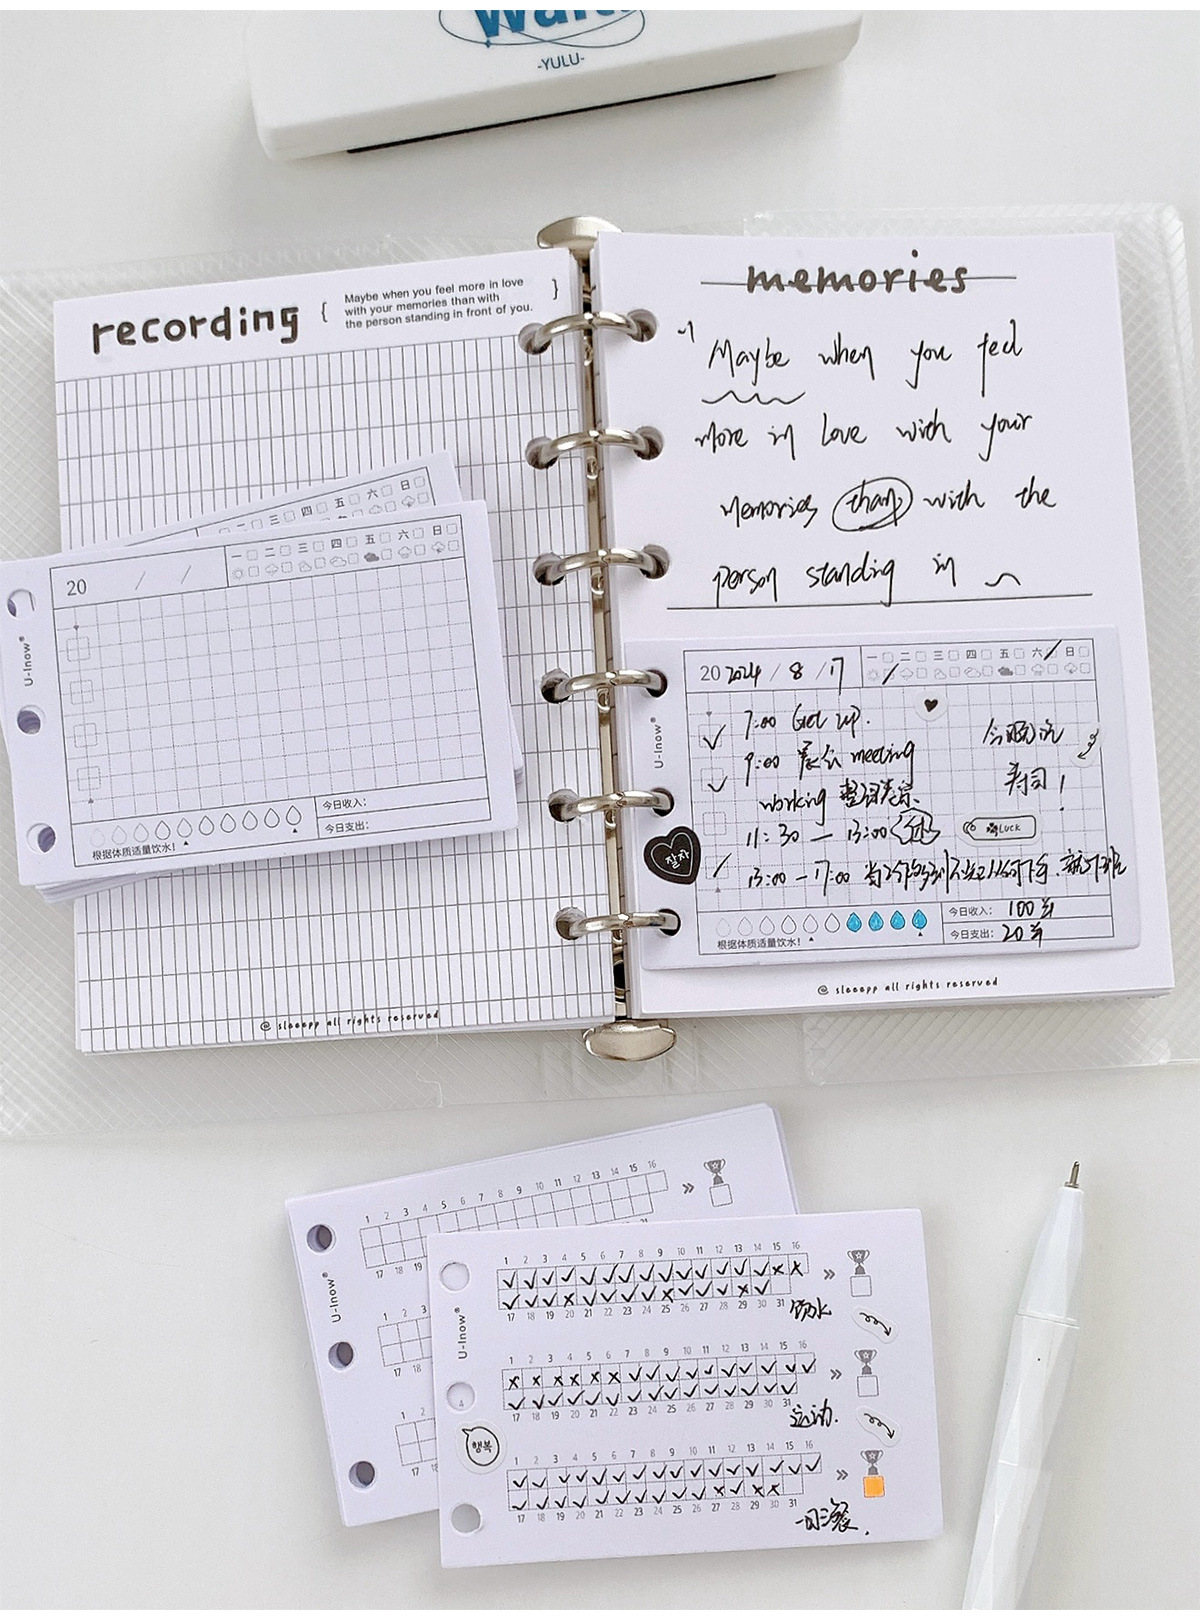 -YULU-
recording
{ Maybe when you feel more in love
with your memories than with
the person standing in front of you. }
@ sleeepp all rights reserved
三 四 五 六 日
20 / / 一 二 三 四 五 六 日
U-Inow®
今日收入:
根据体质适量饮水! 今日支出:
memories
Maybe when you feel
more in love with your
memories than with the
person standing in
20 2024 / 8 / 17 一 二 三 四 五 六 日
U-Inow®
7:00 Get up.
9:00 晨会 meeting
working
寿司!
11:30 — 13:00
LUCK
13:00 — 17:00
잘자
今日收入: 100
根据体质适量饮水! 今日支出: 20
@ sleeepp all rights reserved
1 2 3 4 5 6 7 8 9 10 11 12 13 14 15 16
17 18 19
U-Inow®
1 2 3
17 18
1 2
17
1 2 3 4 5 6 7 8 9 10 11 12 13 14 15 16
17 18 19 20 21 22 23 24 25 26 27 28 29 30 31
饮水
U-Inow®
1 2 3 4 5 6 7 8 9 10 11 12 13 14 15 16
17 18 19 20 21 22 23 24 25 26 27 28 29 30 31
运动.
행복
1 2 3 4 5 6 7 8 9 10 11 12 13 14 15 16
17 18 19 20 21 22 23 24 25 26 27 28 29 30 31
一日三餐.